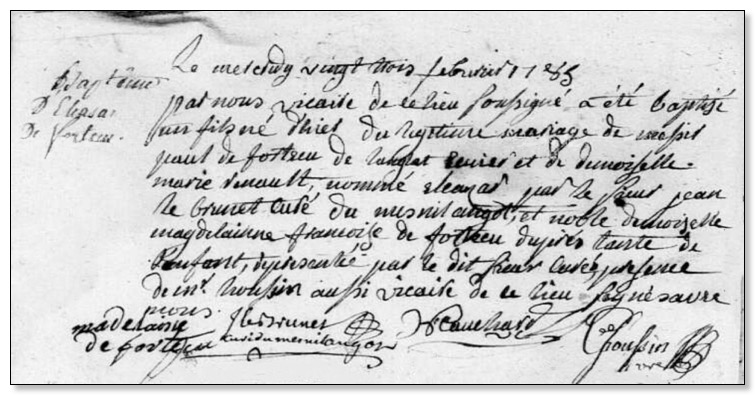 Baptême
D'Eleasar
De fortecu.
Le mercredy vingt trois febvrier 1785
par nous vicaire de ce lieu soussigné a été baptisé
un fils né d'hier du legitime mariage de messir
paul de fortecu de Ecuier et de demoiselle
marie renault, nommé eleazar par le sieur jean
le brunet Curé du mesnilangot, et noble demoiselle
magdelainne francoise de fortecu tante de
l'enfant, representée par le dit sieur Curé presence
de mr. houssin aussi vicaire de ce lieu
madelaine
de fortecu
J lebrunet
curé du mesnilangot
houssin